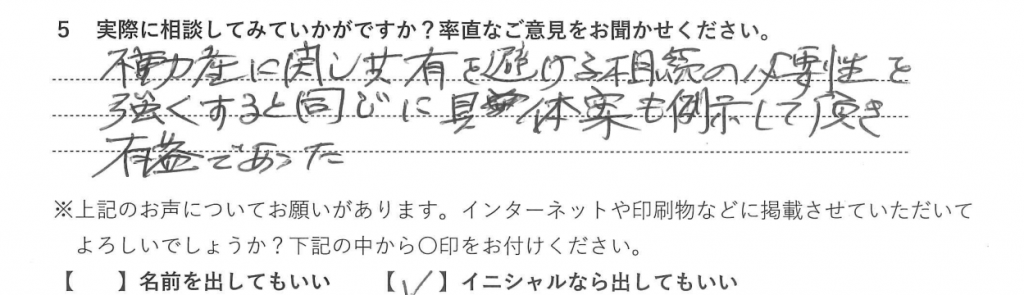 5 実際に相談してみていかがですか？率直なご意見をお聞かせください。
不動産に関し共有を避ける相続の必要性を
強くすると同じに具体案も例示して頂き
有益であった
※上記のお声についてお願いがあります。インターネットや印刷物などに掲載させていただいて
よろしいでしょうか？下記の中から〇印をお付けください。
【　　】名前を出してもいい　　【 ✓ 】イニシャルなら出してもいい